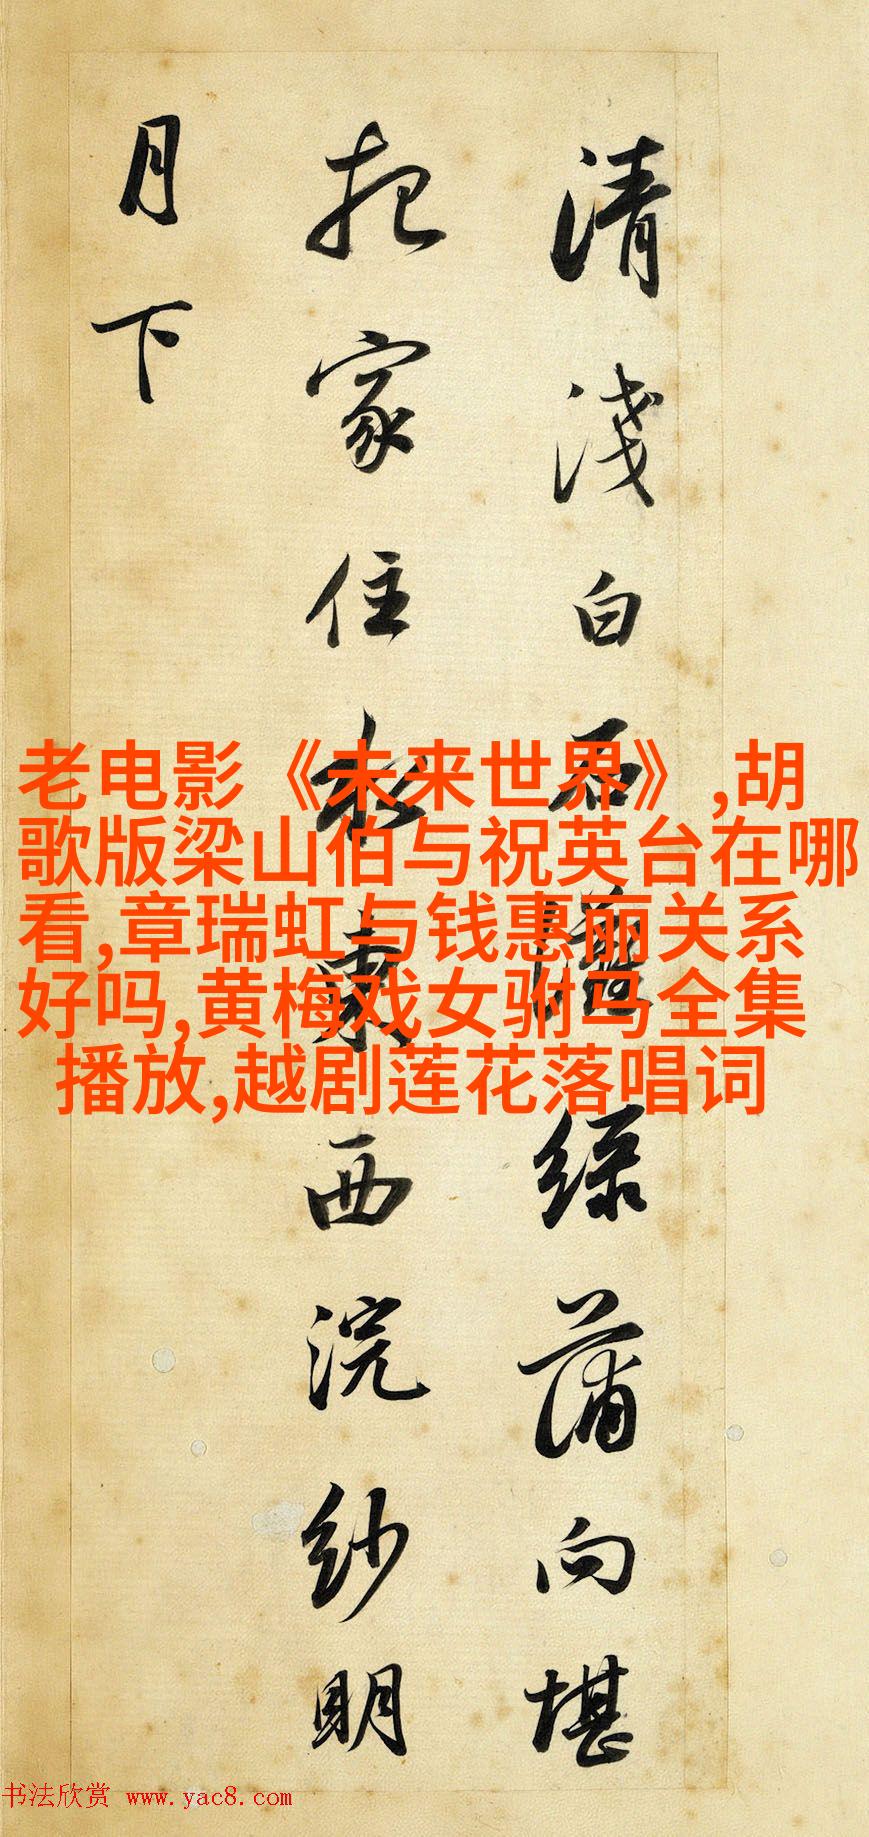 清淺白石灘綠蒲向堪
把家住水東西浣紗明
月下
老电影《未来世界》,胡
歌版梁山伯与祝英台在哪
看,章瑞虹与钱惠丽关系
好吗,黄梅戏女驸马全集
播放,越剧莲花落唱词
书法欣赏 www.yac8.com